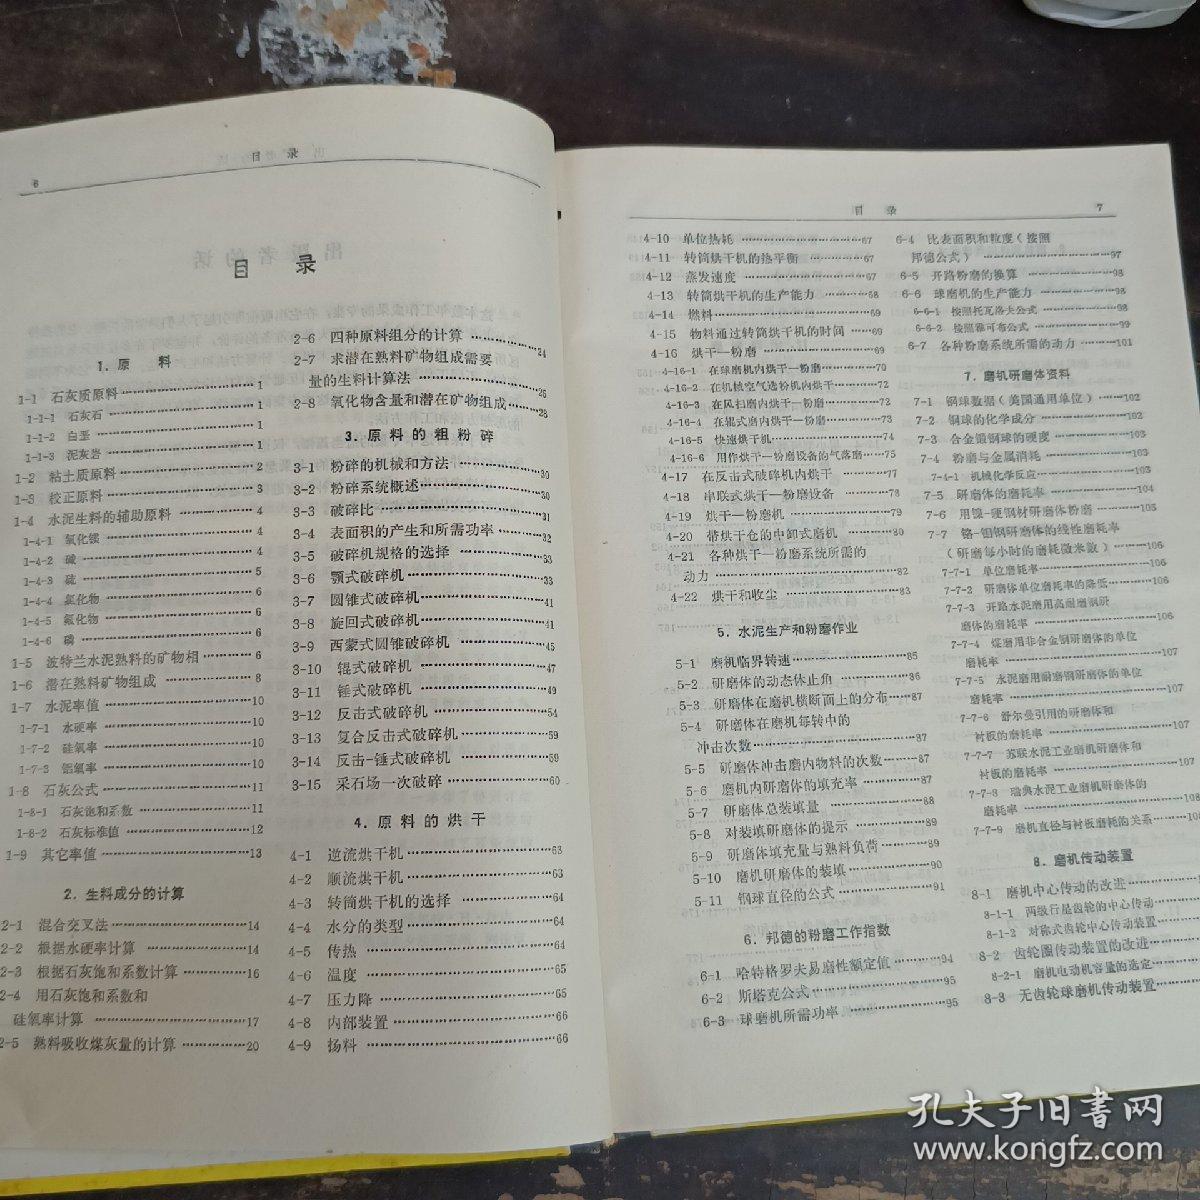 6
目 录
目 录
1. 原 料
1-1 石灰质原料 1
1-1-1 石灰石 1
1-1-2 白垩 1
1-1-3 泥灰岩 1
1-2 粘土质原料 2
1-3 校正原料 3
1-4 水泥生料的辅助原料 4
1-4-1 氧化镁 4
1-4-2 碱 4
1-4-3 硫 5
1-4-4 氯化物 6
1-4-5 氟化物 6
1-4-6 磷 6
1-5 波特兰水泥熟料的矿物相 6
1-6 潜在熟料矿物组成 8
1-7 水泥率值 10
1-7-1 水硬率 10
1-7-2 硅氧率 10
1-7-3 铝氧率 10
1-8 石灰公式 11
1-8-1 石灰饱和系数 11
1-8-2 石灰标准值 12
1-9 其它率值 13
2. 生料成分的计算
2-1 混合交叉法 14
2-2 根据水硬率计算 14
2-3 根据石灰饱和系数计算 16
2-4 用石灰饱和系数和
硅氧率计算 17
2-5 熟料吸收煤灰量的计算 20
2-6 四种原料组分的计算 24
2-7 求潜在熟料矿物组成需要
量的生料计算法 25
2-8 氧化物含量和潜在矿物组成 28
3. 原料的粗粉碎
3-1 粉碎的机械和方法 30
3-2 粉碎系统概述 30
3-3 破碎比 31
3-4 表面积的产生和所需功率 32
3-5 破碎机规格的选择 33
3-6 颚式破碎机 33
3-7 圆锥式破碎机 41
3-8 旋回式破碎机 41
3-9 西蒙式圆锥破碎机 45
3-10 辊式破碎机 47
3-11 锤式破碎机 49
3-12 反击式破碎机 54
3-13 复合反击式破碎机 59
3-14 反击-锤式破碎机 59
3-15 采石场一次破碎 60
4. 原料的烘干
4-1 逆流烘干机 63
4-2 顺流烘干机 63
4-3 转筒烘干机的选择 64
4-4 水分的类型 64
4-5 传热 64
4-6 温度 65
4-7 压力降 65
4-8 内部装置 66
4-9 扬料 66
目 录
7
4-10 单位热耗 67
4-11 转筒烘干机的热平衡 67
4-12 蒸发速度 67
4-13 转筒烘干机的生产能力 68
4-14 燃料 69
4-15 物料通过转筒烘干机的时间 69
4-16 烘干—粉磨 69
4-16-1 在球磨机内烘干—粉磨 70
4-16-2 在机械空气选粉机内烘干 72
4-16-3 在风扫磨内烘干—粉磨 72
4-16-4 在辊式磨内烘干—粉磨 72
4-16-5 快速烘干机 74
4-16-6 用作烘干—粉磨设备的气落磨 75
4-17 在反击式破碎机内烘干 77
4-18 串联式烘干—粉磨设备 78
4-19 烘干—粉磨机 79
4-20 带烘干仓的中卸式磨机 80
4-21 各种烘干—粉磨系统所需的
动力 82
4-22 烘干和收尘 83
5. 水泥生产和粉磨作业
5-1 磨机临界转速 85
5-2 研磨体的动态休止角 86
5-3 研磨体在磨机横断面上的分布 87
5-4 研磨体在磨机每转中的
冲击次数 87
5-5 研磨体冲击磨内物料的次数 87
5-6 磨机内研磨体的填充率 87
5-7 研磨体总装填量 88
5-8 对装填研磨体的提示 89
5-9 研磨体填充量与熟料负荷 89
5-10 磨机研磨体的装填 90
5-11 钢球直径的公式 91
6. 邦德的粉磨工作指数
6-1 哈特格罗夫易磨性额定值 94
6-2 斯塔克公式 95
6-3 球磨机所需功率 95
6-4 比表面积和粒度（按照
邦德公式） 97
6-5 开路粉磨的换算 98
6-6 球磨机的生产能力 98
6-6-1 按照托瓦洛夫公式 98
6-6-2 按照雅可布公式 99
6-7 各种粉磨系统所需的动力 101
7. 磨机研磨体资料
7-1 钢球数据（美国通用单位） 102
7-2 钢球的化学成分 102
7-3 合金锻钢球的硬度 103
7-4 粉磨与金属消耗 103
7-4-1 机械化学反应 103
7-5 研磨体的磨耗率 104
7-6 用镍-硬钢材研磨体粉磨 105
7-7 铬-钼钢研磨体的线性磨耗率
（研磨每小时的磨耗微米数） 106
7-7-1 单位磨耗率 106
7-7-2 研磨体单位磨耗率的降低 106
7-7-3 开路水泥磨用高耐磨钢研
磨体的磨耗率 106
7-7-4 煤磨用非合金钢研磨体的单位
磨耗率 107
7-7-5 水泥磨用耐磨钢研磨体的单位
磨耗率 107
7-7-6 舒尔曼引用的研磨体和
衬板的磨耗率 107
7-7-7 苏联水泥工业磨机研磨体和
衬板的磨耗率 107
7-7-8 瑞典水泥工业磨机研磨体的
磨耗率 108
7-7-9 磨机直径与衬板磨耗的关系 108
8. 磨机传动装置
8-1 磨机中心传动的改进
8-1-1 两级行星齿轮的中心传动
8-1-2 对称式齿轮中心传动装置
8-2 齿轮圈传动装置的改进
8-2-1 磨机电动机容量的选定
8-3 无齿轮球磨机传动装置
孔夫子旧书网
www.kongfz.com